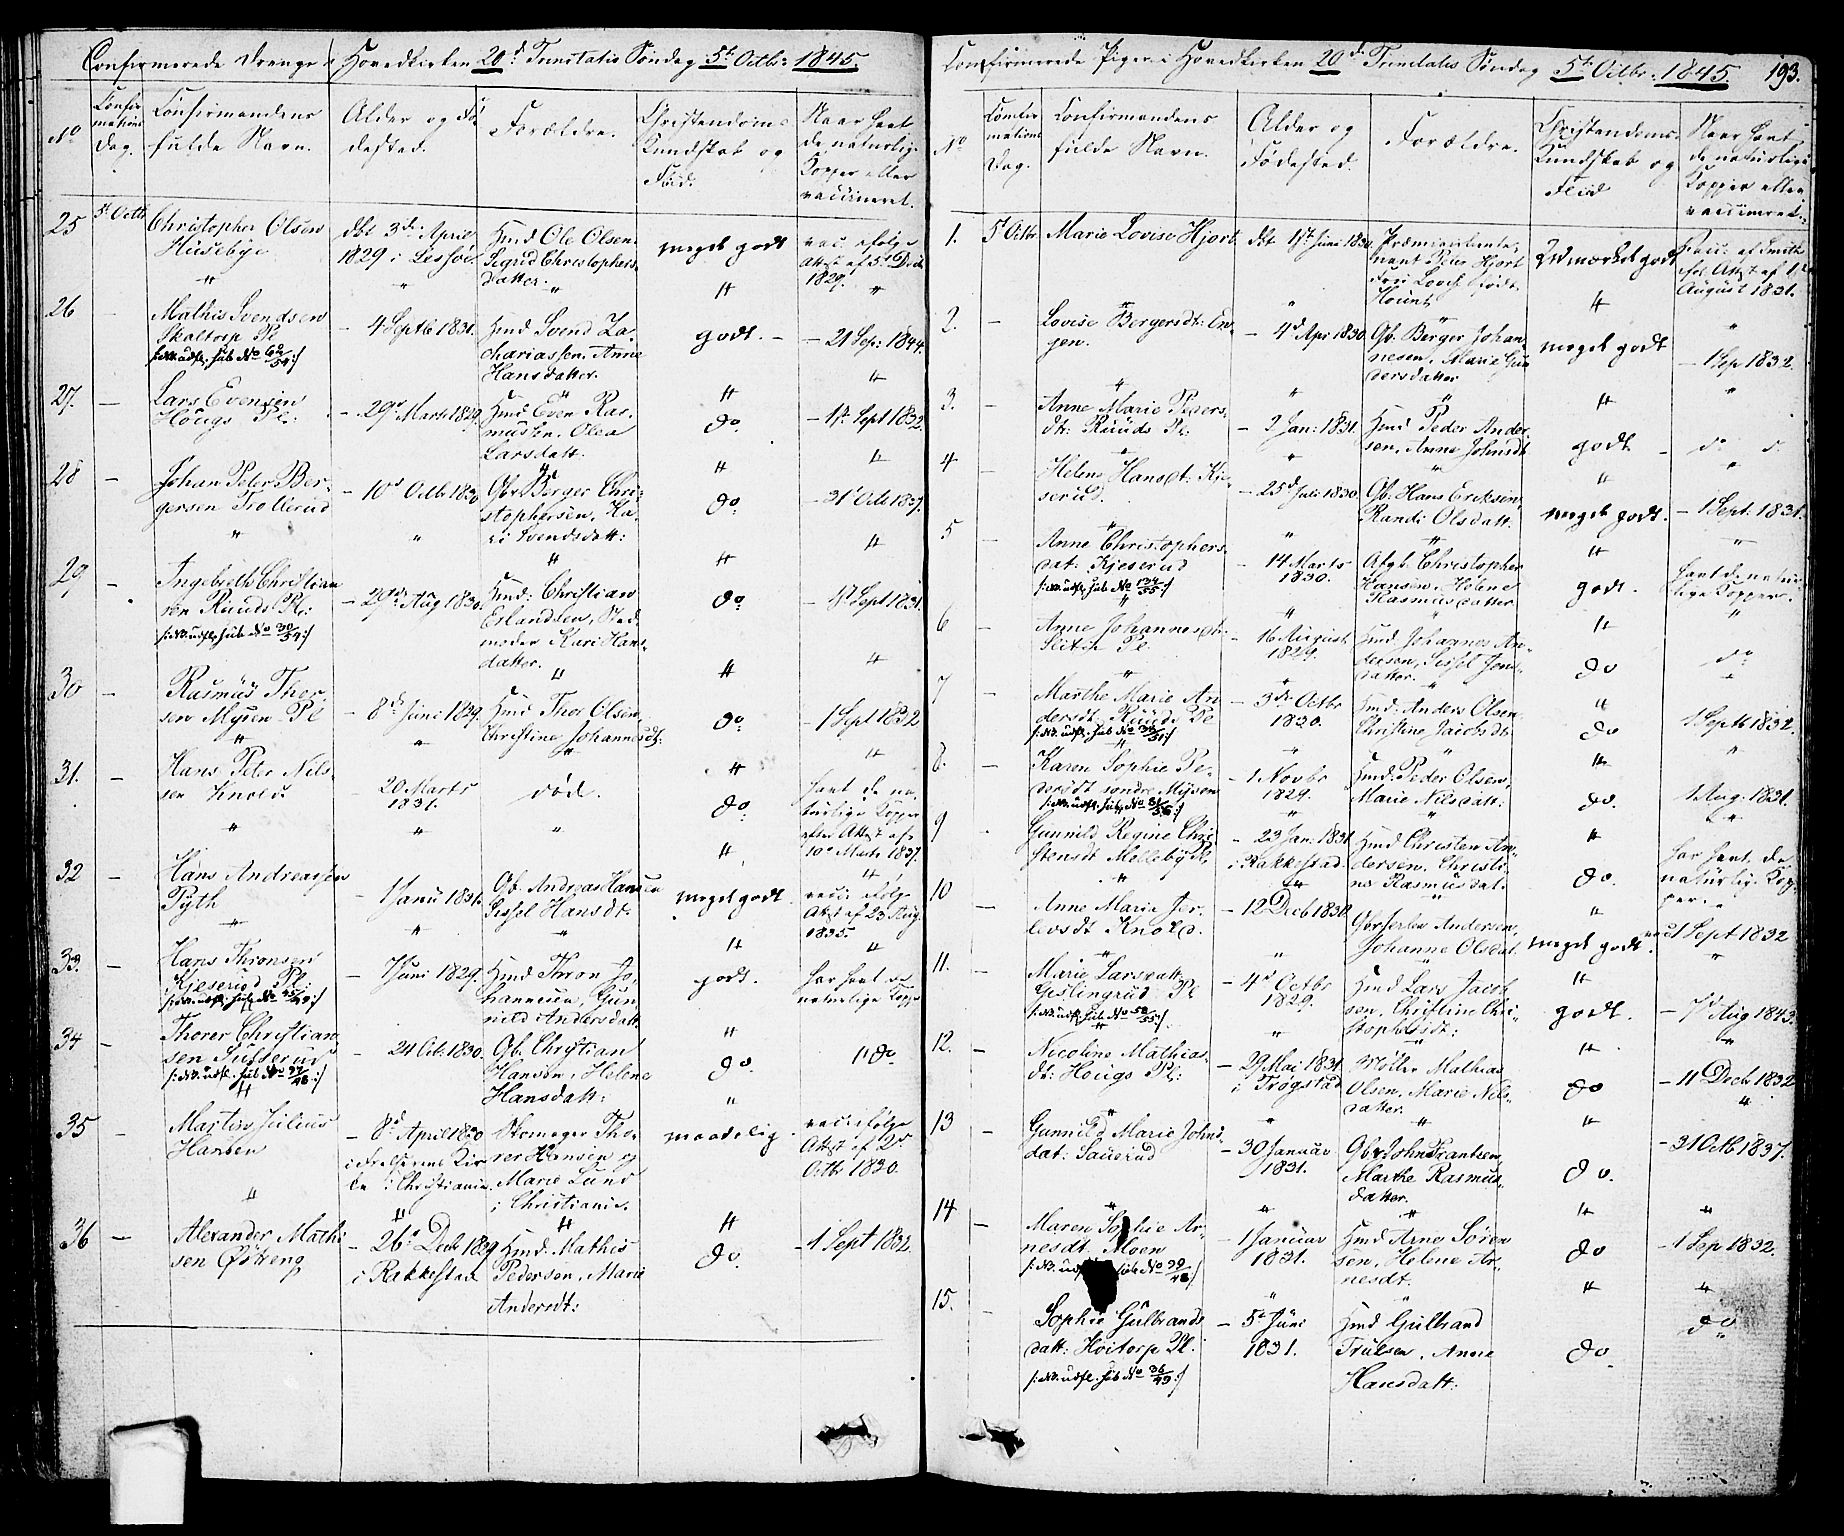 Confirmerede Drenge i Hovedkirken 20d Trinitatis Søndag 5t Octbr 1845.
No
Confir
mations
Dag.
Confirmandens
fulde Navn.
Alder og Fø
dested.
Forældre.
Christendoms
Kundskab og
Flid.
Naar havt
de naturlig.
Kopper eller
vaccineret.
25 5t Octb Christopher Olsen
Husebye
dbt 3d April
1829 i
Hmd Ole Olsen.
Sigrid Christophers
datter.
meget godt
vac. ifølge
Attst af 5t Decb
1829.
26 – Mathis Svendsen
Skaltorp Pl
/:NB. udfl. sub No 62/54:/
– 4 Septb 1831.
Hmd Svend Za
chariassen, Anne
Hansdatter.
godt. –
– 21 Sep: 1844.
27. – Lars Evensen
Hougs Pl:
– 29d Marts 1829.
Hmd Even Ras
mussen, Olea
Larsdatt.
do.
– 1t Sept 1832.
28 – Johan Peter Ber
gersen Trollerud
– 10d Octb 1830
Gbr. Berger Chri
stophersen, Ka
ri Svendsdatt:
do.
– 31t Octb 1837.
29 – Ingebreth Christian
sen Ruuds Pl:
/:NB. udfl. sub No 30/54:/
– 29d Aug 1830.
Hmd: Christian
Erlandsen, Sted
moder Kari Hans
datter.
do.
– 1t Sept 1831.
30 – Rasmus Thor
sen Mysen Pl
– 8d Juni 1829.
Hmd Thor Olsen,
Christine Johannesdt:
do.
– 1 Sept 1832
31. – Hans Peter Nils
sen Knold.
– 20 Marts
1831.
død.
do.
havt de na
turlige Kopper
efter Attst af
10d Marts 1837.
32 – Hans Andreassen
Pyth
– 1 Janu 1831.
Gb. Andreas Hansen
Sissel Hansdt.
meget godt.
vacc. ifølge
Attst af 23 Aug.
1835.
33. – Hans Thronsen
Kjeserud Pl:
– 7 Juni 1829.
Hmd Thron Jo
hannesen, Gun
nild Andersdatt.
godt.
har havt de
naturlige Kopp
34 – Thorer Christian
sen Susserud
/:NB. udfl. sub No 37/48:/
– 24 Oct. 1830.
Gb. Christian
Hansen, Helene
Hansdatt:
do.
do
35 – Martin Julius
Hansen
– 8d April 1830
i Frelserens Kir
ke i Christiania.
Skomager Tho
rer Hansen og
Marie Lund
i Christiania.
maadelig.
vacc. ifølge
Attst af 2d
Octbr 1830.
36 – Alexander Mathi
sen Østeng
– 26d Decb 1829
i Rakkestad
Hmd: Mathis
Pedersen, Marie
Andersdt:
do.
– 1 Sept 1832.
Confirmerede Piger i Hovedkirken 20d Trinitatis Søndag 5t Octbr: 1845. 193.
No
Confir
mations
Dag.
Confirmandens
fulde Navn.
Alder og
Fødested.
Forældre.
Christendoms
Kundskab og
Flid
Naar havt
de naturlige
Kopper eller
vaccineret.
1. 5t Octbr. Marie Lovise Hjort
dbt 17d Juni 1830
Premierleute
nant Peter Hjort
Fru Lovise født
Udmærket godt
Vacc: af Smith
ifl Attst af 1t
August 1831.
2. – Lovise Bergersdt: En
gen.
– 4d Apr 1830.
Gb. Berger Johan
nesen, Marie Gun
dersdatter
meget godt
– 1 Sep 1832.
3. – Anne Marie Peders
dt: Ruuds Pl:
– 2 Jan: 1831.
Hmd Peder Ander
sen, Anne Johnsdt
godt
– do do
4 – Helene Hansdt: Kje
serud.
– 25d Juli 1830.
Gb. Hans Eriksen,
Randi Olsdatt:
meget godt.
– 1 Sept: 1831.
5 – Anne Christophers
dat. Kjeserud
/:NB. udfl. sub No 134/55:/
– 14 Marts
1830.
Afgb. Christopher
Hansen, Helene
Rasmusdatter
godt.
havt de natur
lige Kopper.
6 – Anne Johannesdt.
Slitu Pl.
– 16 August
1829.
Hmd Johannes An
dersen, Sissel Jens
datter.
do
do
7 – Marthe Marie An
dersdt. Ruuds Pl
– 3de Octbr
1830.
Hmd: Anders Olsen
Christine Jacobsdt:
do
1 Septb 1832.
8. – Karen Sophie Pe
dersdt søndre Mysen
– 1 Novbr
1829.
Hmd: Peder Olsen,
Marie Nilsdatt:
do.
1 Aug: 1831.
9 Gunnild Regine Chri
stensdt Melleby Pl.
– 23 Jan: 1831
i Rakkestad
Hmd Christen An
dersen, Christi
ne Rasmusdat:
do.
har havt de
naturlig. Kop
per.
10 – Anne Marie Jer
levsdt Knold.
– 12 Decb 1830.
Gbr Jerlev Andersen
Johanne Olsdat.
meget godt.
1 Sept 1832
11. – Marie Larsdatt:
Geslingrud Pl
/:NB. udfl. sub No 50/55:/
– 4d Octbr
1829.
Hmd Lars Jacob
sen, Christine Chri
stophersdt:
godt.
– 7d Aug 1843.
12. – Nicoline Mathias
dt: Hougs Pl:
– 29 Mai 1831
i Trøgstad
Møller Mathias
Olsen, Marie Nils
datter.
do
– 11 Decb 1832
13 Gunnild Marie Johns
dat:
– 30 Januar
1831.
Gbr John Frantsen,
Marthe Rasmus
datter.
do.
– 31 Octb 1837.
14 – Maren Sophie Ar
nesdt. Moen
/:NB. udfl. sub No 39/48:/
– 1 Januar
1831.
Hmd Arne Søren
sen, Helene Ar
nesdt.
do
– 1 Sep 1832.
15. – Sophie Gulbrands
datt: Hoitorp Pl:
/:NB. udfl. sub No 36/49:/
– 5t Juni
1831.
Hmd Gulbrand
Trulsen, Anne
Hansdatt:
do.
do